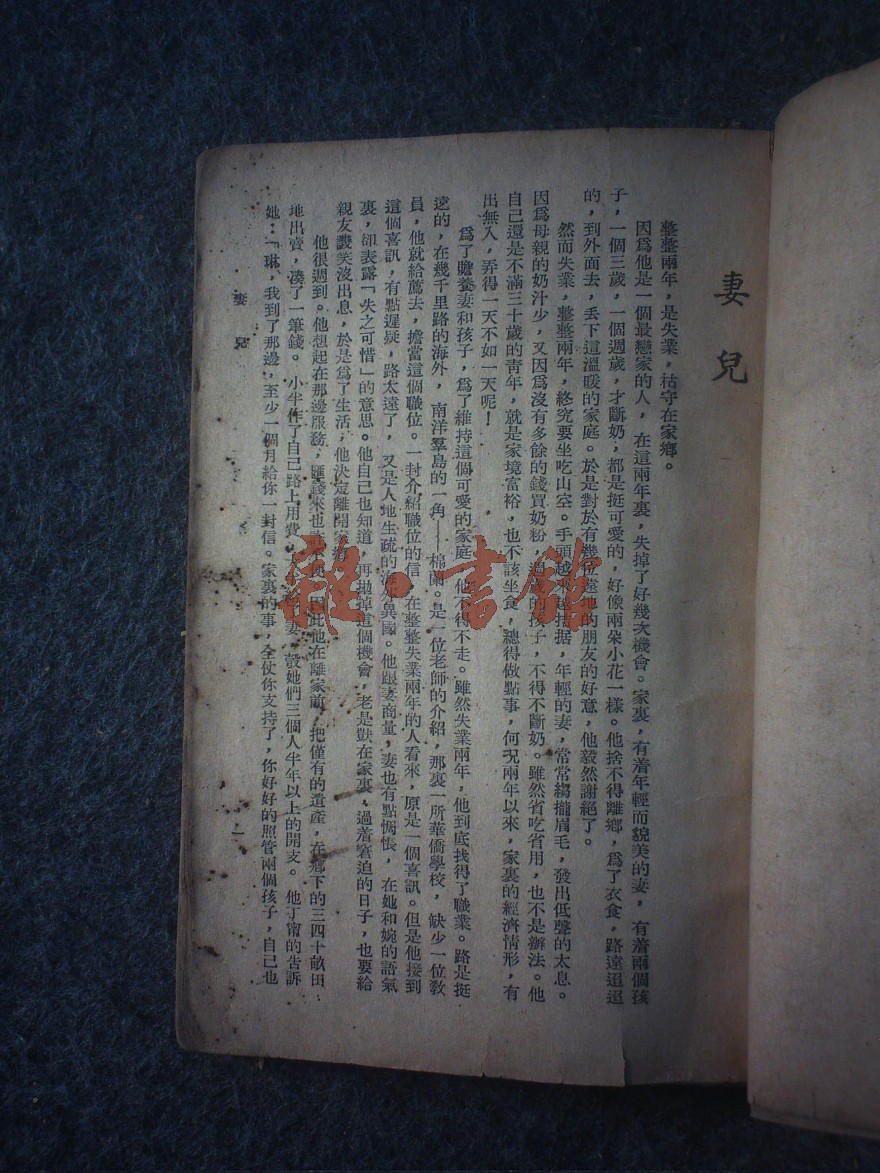 妻兒
整整兩年，是失業，枯守在家鄉。
因爲他是一個最戀家的人，在這兩年裏，失掉了好幾次機會。家裏，有着年輕而貌美的妻，有着兩個孩
子，一個三歲，一個週歲，才斷奶，都是挺可愛的，好像兩朵小花一樣。他捨不得離鄉，爲了衣食，路遠迢迢
的，到外面去，丟下這溫暖的家庭。於是對於有幾位遠地的朋友的好意，他毅然謝絕了。
然而失業，整整兩年，終究要坐吃山空。手頭越來越拮据，年輕的妻，常常縐攏眉毛，發出低聲的太息。
因爲母親的奶汁少，又因爲沒有多餘的錢買奶粉，週歲的孩子，不得不斷奶。雖然省吃省用，也不是辦法。他
自己還是不滿三十歲的靑年，就是家境富裕，也不該坐食，總得做點事，何况兩年以來，家裏的經濟情形，有
出無入，弄得一天不如一天呢！
爲了贍養妻和孩子，爲了維持這個可愛的家庭，他不得不走。雖然失業兩年，他到底找得了職業。路是挺
遠的，在幾千里路的海外，南洋羣島的一角——棉蘭。是一位老師的介紹，那裏一所華僑學校，缺少一位敎
員，他就給薦去，擔當這個職位。一封介紹職位的信，在整整失業兩年的人看來，原是一個喜訊。但是他接到
這個喜訊，有點遲疑，路太遠了，又是人地生疏的海外異國。他跟妻商量，妻也有點惆悵，在她和婉的語氣
裏，却表露「失之可惜」的意思。他自己也知道，再拋掉這個機會，老是獃在家裏，過着窘迫的日子，也要給
親友譏笑沒出息，於是爲了生活，他決定離開家鄉。
他很週到。他想起在那邊服務，匯錢來也 因此他在離家前，把僅有的遺產，在鄉下的三四十畝田
地出賣，湊了一筆錢。小半作了自己路上用費， 妻，彀她們三個人半年以上的開支。他丁甯的告訴
她：「琳，我到了那邊，至少一個月給你一封信。家裏的事，全仗你支持了，你好好的照管兩個孩子，自己也
妻兒
一
雜·書館